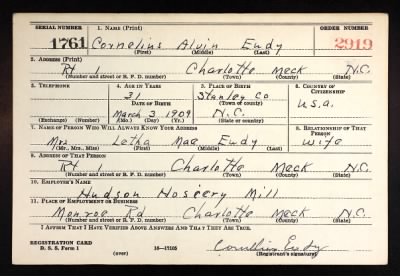 SERIAL NUMBER 1. NAME (Print) ORDER NUMBER
1761 Cornelius Alvin Eudy 2919
(First) (Middle) (Last)
2. ADDRESS (Print)
Rt 1 Charlotte Meck N.C.
(Number and street or R. F. D. number) (Town) (County) (State)
3. TELEPHONE 4. AGE IN YEARS 5. PLACE OF BIRTH 6. COUNTRY OF CITIZENSHIP
31 Stanley Co
DATE OF BIRTH (Town or county) U.S.A.
March 3 1909 N.C.
(Exchange) (Number) (Mo.) (Day) (Yr.) (State or country)
7. NAME OF PERSON WHO WILL ALWAYS KNOW YOUR ADDRESS 8. RELATIONSHIP OF THAT PERSON
Mrs Letha Mae Eudy Wife
(Mr., Mrs., Miss) (First) (Middle) (Last)
9. ADDRESS OF THAT PERSON
Rt 1 Charlotte Meck N.C.
(Number and street or R. F. D. number) (Town) (County) (State)
10. EMPLOYER'S NAME
Hudson Hosiery Mill
11. PLACE OF EMPLOYMENT OR BUSINESS
Monroe Rd Charlotte Meck N.C.
(Number and street or R. F. D. number) (Town) (County) (State)
I AFFIRM THAT I HAVE VERIFIED ABOVE ANSWERS AND THAT THEY ARE TRUE.
REGISTRATION CARD
D. S. S. Form 1 16-17105 Cornelius Eudy
(over) (Registrant's signature)